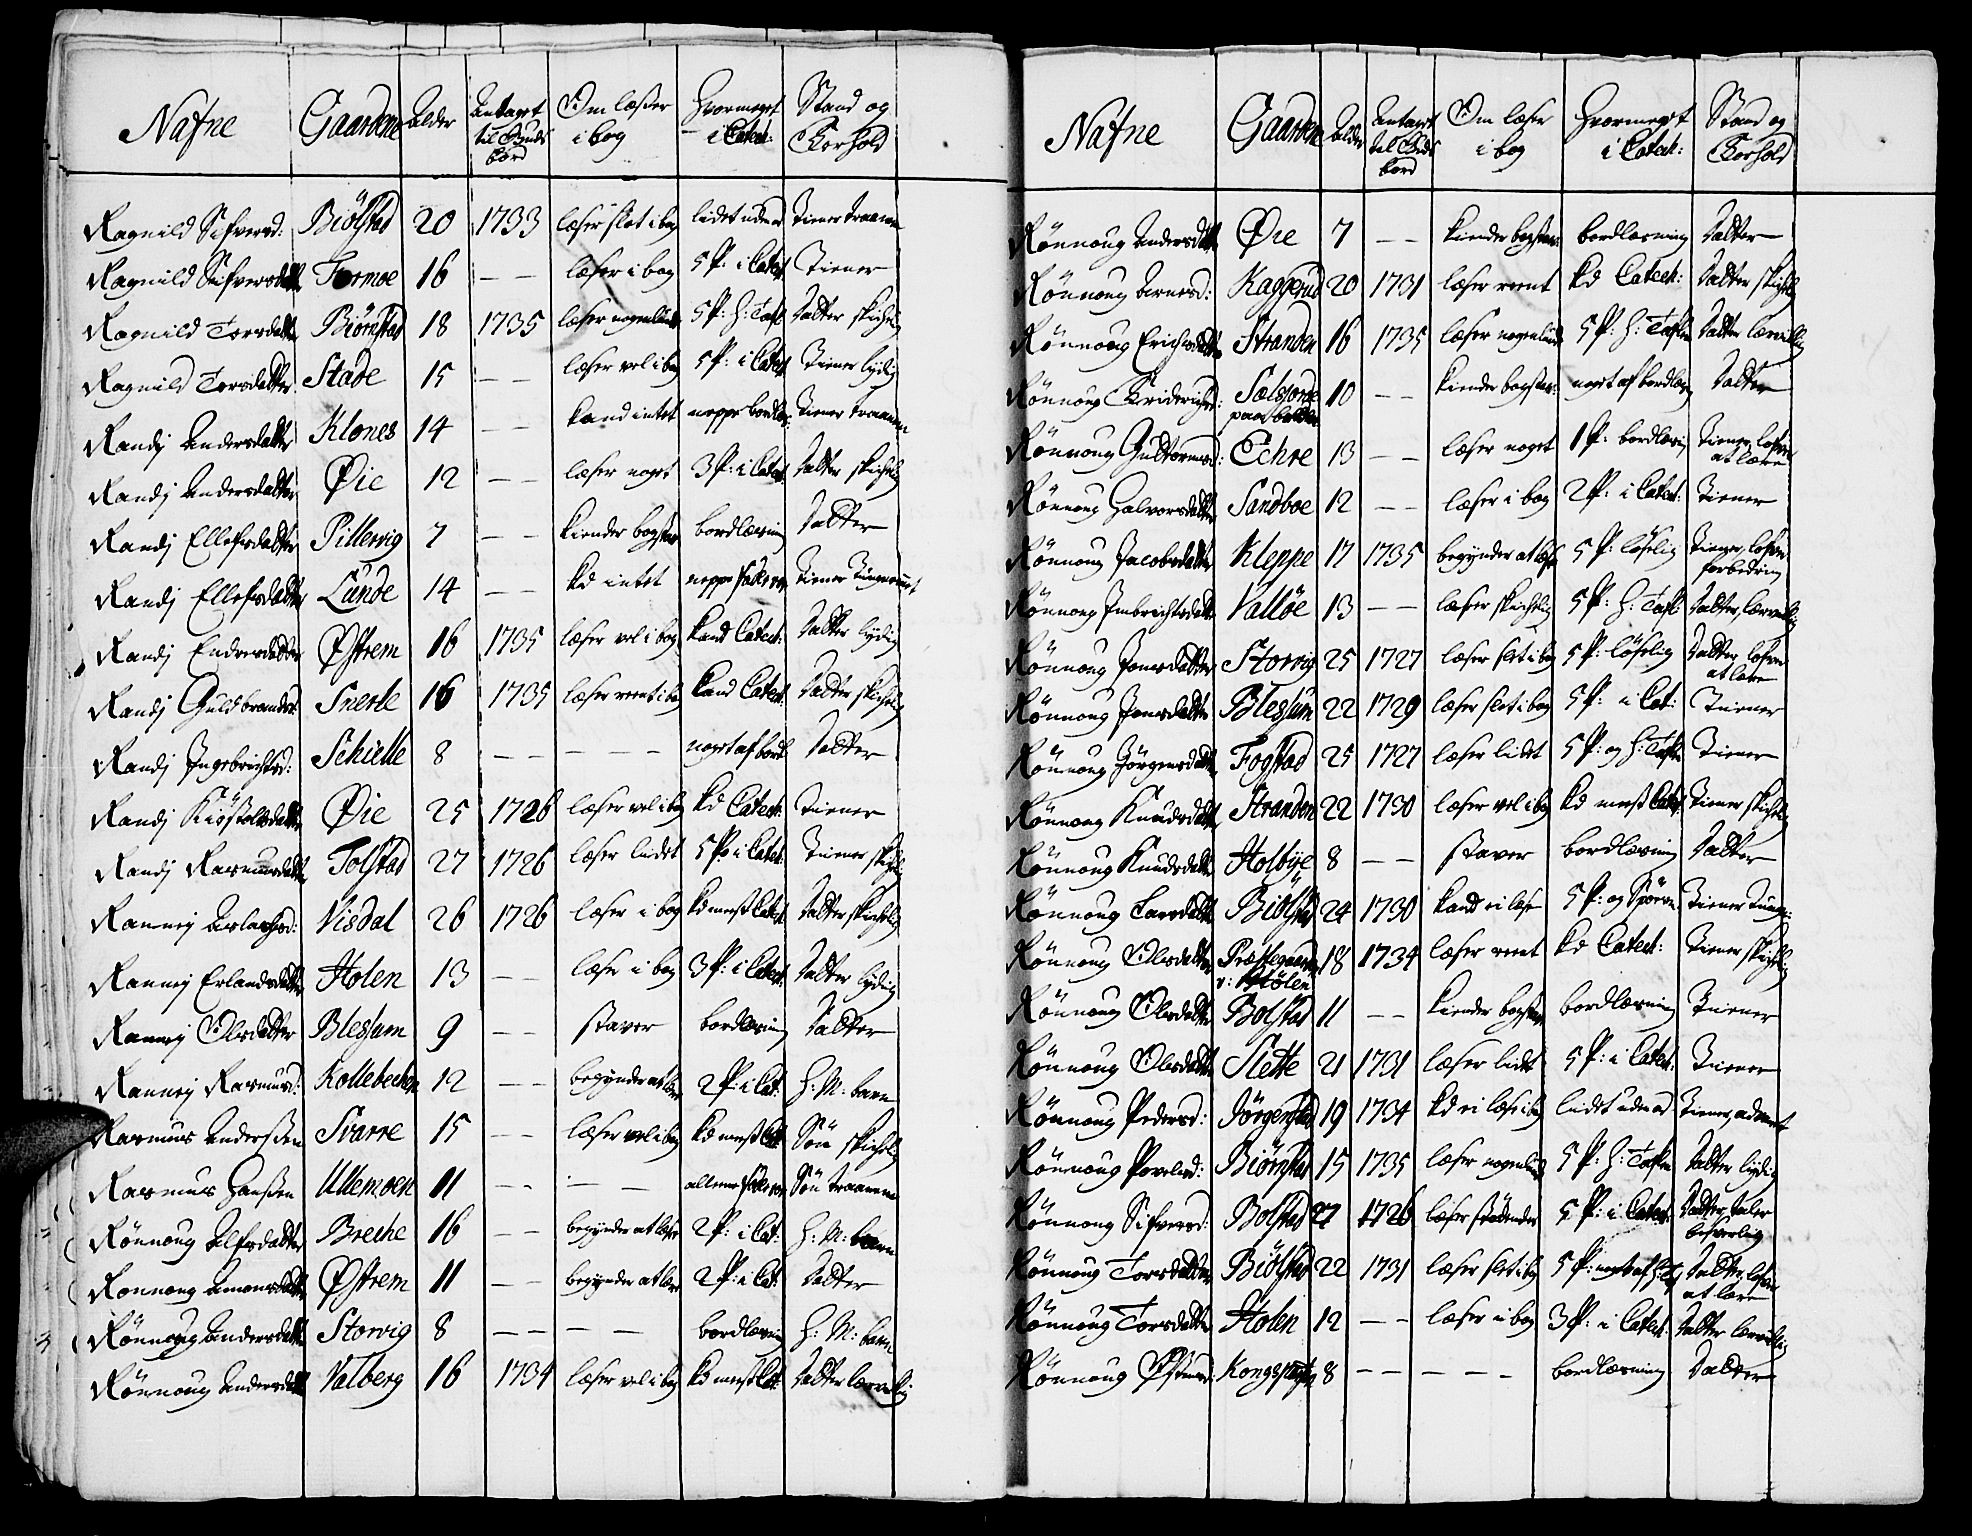 Nafne Gaardene Alder Antaget til Guds bord Om læser i bog Hvormeget i Catech: Stand og Forhold
Ragnild Sifversd: Biölstad 20 1733 læser slet i bog lidet uden ad Tiener
Ragnild Sifversdatter Formoe 16 — — læser i bog 5 P: i Catech Tiener
Ragnild Torsdatter Biörnstad 18 1735 læser nogenlunde 5 P: H: Tafl Datter skichelig
Ragnild Torsdatter Stade 15 — — læser vel i bog 5 P: i Catech Tiener lydig
Randj Andersdatter Klones 14 — — kand intet neppe bordlæs: Tiener
Randj Andersdatter Öie 12 — — læser noget 3 P: i Catech Datter skichelig
Randj Ellefsdatter Pillervig 7 — — kiender bogstav bordlæsning Datter
Randj Ellefsdatter Lunde 14 — — kd intet neppe Faderv Tiener
Randj Endresdatter Östrem 16 1735 læser vel i bog kand Catech: Datter lydig
Randj Guldbrandsd: Snerle 16 1735 læser reent i bog kand Catech: Datter skichelig
Randj Ingebrichtsd: Schielle 8 — — — — — noget af bordl Datter
Randj Kiöstolsdatter Öie 25 1726 læser vel i bog kd Catech: Tiener
Randj Rasmusdatter Tolstad 27 1726 læser lidet 5 P: i Catech Tiener skichelig
Ranney Aslachsd: Visdal 26 1726 læser i bog kd mest Catech Datter skichelig
Ranney Erlandsdatter Holen 13 — — læser i bog 3 P: i Catech: Datter lydig
Ranney Olsdatter Blessum 9 — — staver bordlæsning Datter
Ranney Rasmusd: Kollebechen 12 — — begynder at læse 2 P: i Cat: H: M: barn
Rasmus Anderssen Svarre 15 — — læser vel i bog kd mest Cat Sön skichelig
Rasmus Hanssen Ullemoen 11 — — — — allene Faderv Sön
Rönnoug Alfsdatter Breche 16 — — begynder at læse 2 P: i Cat: H: M: barn
Rönnoug Amonsdatter Östrem 11 — — begynder at læse 2 P: i Cat: Datter
Rönnoug Andersdatter Storvig 8 — — — — bordlæsning H: M: barn
Rönnoug Andersdatter Valberg 16 1734 læser vel i bog kd mest Cat: Datter lærvillig
Nafne Gaardene Alder Antaget til Guds bord Om læser i bog Hvormeget i Catech: Stand og Forhold
Rönnoug Andersdatter Öie 7 — — kiender bogstav: bordlæsning Datter
Rönnoug Arnesd: Kaggerud 20 1731 læser reent kd Catech: Datter skichelig
Rönnoug Erichsdatter Stranden 16 1735 læser nogenlunde 5 P: H: Taflen Datter lærvillig
Rönnoug Friderichsd: Selsjorde 10 — — kiender bogstav: noget af bordlæsn Datter
Rönnoug Guttormsd: Echre 13 — — læser noget 1 P: bordlæsn Tiener, lofver
at lære
Rönnoug Halvorsdatter Sandboe 12 — — læser i bog 2 P: i Catech: Tiener
Rönnoug Jacobsdatter Kleppe 17 1735 begynder at læse 5 P: löselig Tiener, lofver
forbedring
Rönnoug Imbrichtsdatter Valloe 13 — — læser skichelig 5 P: H: Tafl: Datter, lærvillig
Rönnoug Jonsdatter Storvig 25 1727 læser slet i bog 5 P: löselig Datter, lofver
at lære
Rönnoug Jonsdatter Blessum 22 1729 læser slet i bog 5 P: i Cat: Tiener
Rönnoug Jörgensdatter Fogstad 25 1727 læser lidet 5 P: og H: Tafle Tiener
Rönnoug Knudsdatter Stranden 22 1730 læser vel i bog kd mest Catech: Tiener skichelig
Rönnoug Knudsdatter Holbye 8 — — staver bordlæsning Datter
Rönnoug Larsdatter Biölstad 24 1730 kand ei læse 5 P: og Spörsm Tiener
Rönnoug Olsdatter Præstegaarden 18 1734 læser reent kd Catech: Tiener skichelig
v: Hölen
Rönnoug Olsdatter Bolstad 11 — — kiender bogstav bordlæsning Tiener
Rönnoug Olsdatter Slette 21 1731 læser lidt 5 P: i Catech: Tiener
Rönnoug Pedersd: Jörgenstad 19 1734 kd ei læse i bog lidet uden ad Tiener, advaret
Rönnoug Povelsd: Biörnstad 15 1735 læser nogenlunde 5 P: H: Taflen Datter lydig
Rönnoug Sifversd: Bolstad 27 1726 læser stödende 5 P: i Catech: Datter, taler
besverlig
Rönnoug Torsdatter Biölstad 22 1731 læser slet i bog 5 P: noget af H: Tafl Datter, lofver
at lære
Rönnoug Torsdatter Holen 12 — — læser i bog 3 P: i Catech: Datter lærvillig
Rönnoug Östensd: 8 — — — — — bordlæsning Datter